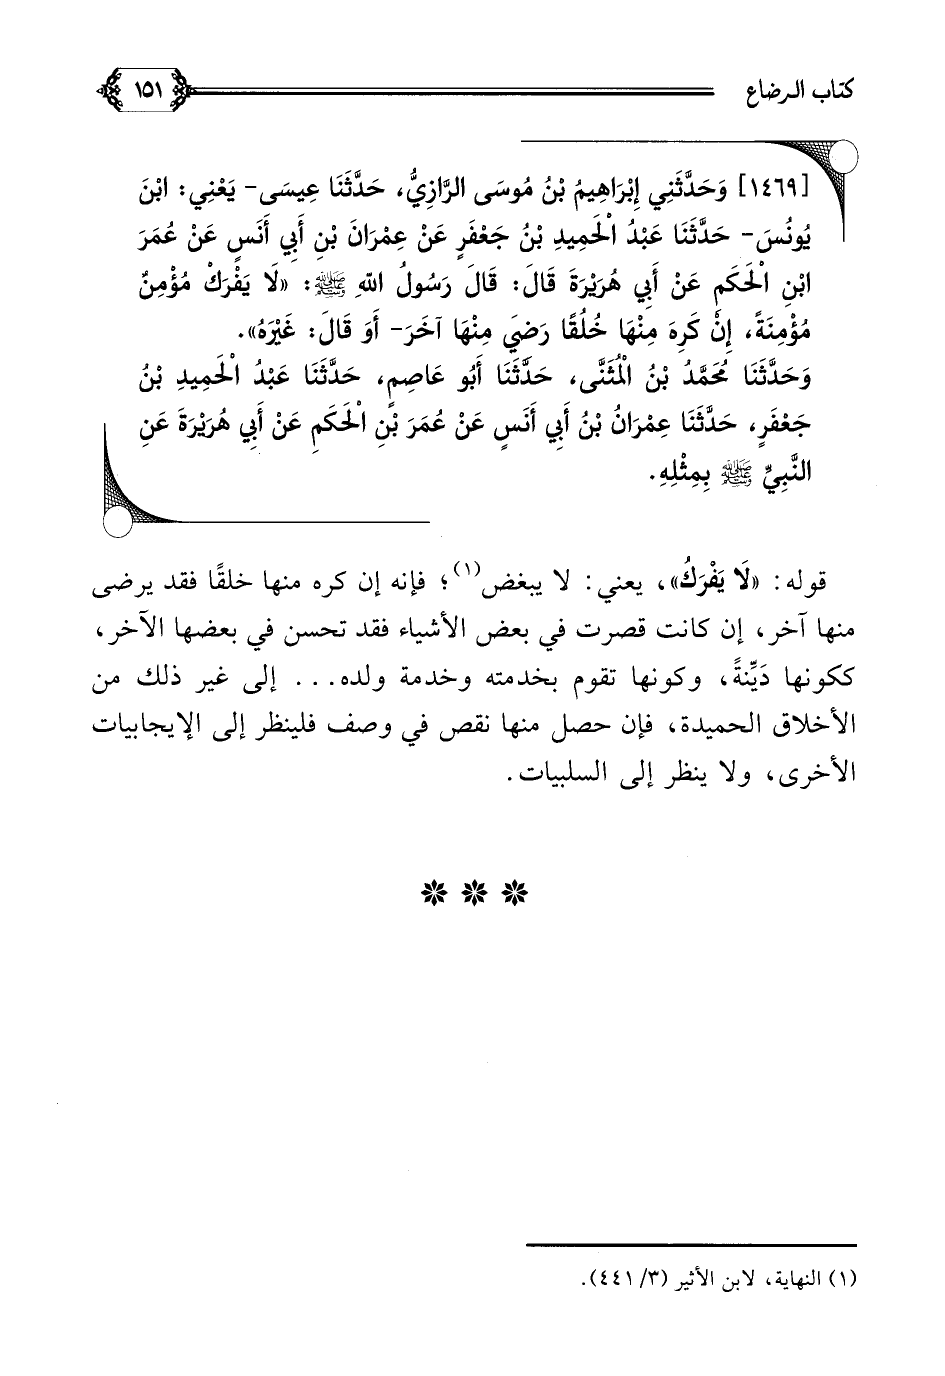 كتاب الرضاع ١٥١
[١٤٦٩] وَحَدَّثَنِي إِبْرَاهِيمُ بْنُ مُوسَى الرَّازِيُّ، حَدَّثَنَا عِيسَى- يَعْنِي: ابْنَ
يُونُسَ- حَدَّثَنَا عَبْدُ الْحَمِيدِ بْنُ جَعْفَرٍ عَنْ عِمْرَانَ بْنِ أَبِي أَنَسٍ عَنْ عُمَرَ
ابْنِ الْحَكَمِ عَنْ أَبِي هُرَيْرَةَ قَالَ: قَالَ رَسُولُ اللهِ ﷺ: «لَا يَفْرَكْ مُؤْمِنٌ
مُؤْمِنَةً، إِنْ كَرِهَ مِنْهَا خُلُقًا رَضِيَ مِنْهَا آخَرَ- أَوَ قَالَ: غَيْرَهُ».
وَحَدَّثَنَا مُحَمَّدُ بْنُ الْمُثَنَّى، حَدَّثَنَا أَبُو عَاصِمٍ، حَدَّثَنَا عَبْدُ الْحَمِيدِ بْنُ
جَعْفَرٍ، حَدَّثَنَا عِمْرَانُ بْنُ أَبِي أَنَسٍ عَنْ عُمَرَ بْنِ الْحَكَمِ عَنْ أَبِي هُرَيْرَةَ عَنِ
النَّبِيِّ ﷺ بِمِثْلِهِ.
قوله: «لَا يَفْرَكُ»، يعني: لا يبغض(١)؛ فإنه إن كره منها خلقًا فقد يرضى
منها آخر، إن كانت قصرت في بعض الأشياء فقد تحسن في بعضها الآخر،
ككونها دَيِّنةً، وكونها تقوم بخدمته وخدمة ولده... إلى غير ذلك من
الأخلاق الحميدة، فإن حصل منها نقص في وصف فلينظر إلى الإيجابيات
الأخرى، ولا ينظر إلى السلبيات.
(١) النهاية، لابن الأثير (٣/ ٤٤١).